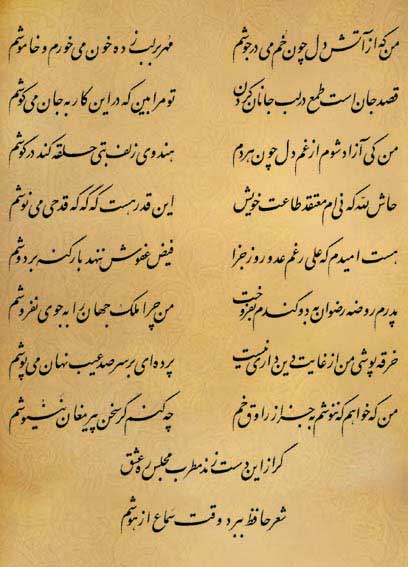 من که از آتش دل چون خم می در جوشم مهر بر لب زده خون می‌خورم و خاموشم
قصد جان است طمع در لب جانان کردن تو مرا بین که در این کار به جان می‌کوشم
من کی آزاد شوم از غم دل چون هر دم هندوی زلف بتی حلقه کند در گوشم
حاش لله که نیم معتقد طاعت خویش این قدر هست که گه گه قدحی می نوشم
هست امیدم که علی رغم عدو روز جزا فیض عفوش ننهد بار گنه بر دوشم
پدرم روضه رضوان به دو گندم بفروخت من چرا ملک جهان را به جوی نفروشم
خرقه پوشی من از غایت دین داری نیست پرده‌ای بر سر صد عیب نهان می‌پوشم
من که خواهم که ننوشم به جز از راوق خم چه کنم گر سخن پیر مغان ننیوشم
گر از این دست زند مطرب مجلس ره عشق
شعر حافظ ببرد وقت سماع از هوشم